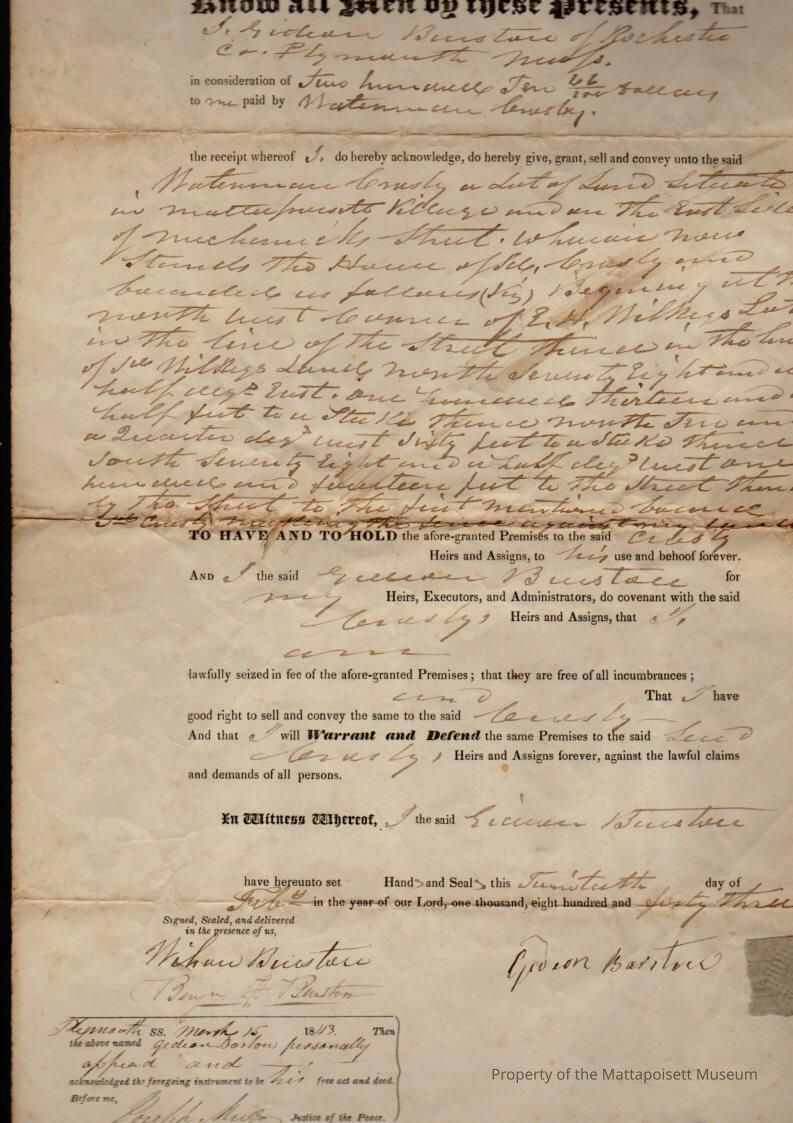 Know all Men by these Presents, That
I, Gideon Barstow of Rochester
Co. Plymouth Mass.
in consideration of Two hundred Ten 66/100 Dollars
to me paid by Waterman Crosby.
the receipt whereof I, do hereby acknowledge, do hereby give, grant, sell and convey unto the said
Waterman Crosby a Lot of Land Situate
in mattapoisett Village and on the East Side
of mechanicks Street. whereon now
Stands the House of Sd. Crosby and
bounded as follows (viz) Beginning at
north west Corner of E. H. Wilkeys Lot
in the line of the Street thence in the line
of sd Wilkeys Land north Seventy Eight and a
half degs East. one hundred thirteen and
half feet to a Stake thence north Ten an
a Quarter degs west Sixty feet to a Stake thence
South Seventy Eight and a half degs west one
hundred and fourteen feet to the Street then
by the Street to the first mentioned bound
Sd Crosby the fence against my
TO HAVE AND TO HOLD the afore-granted Premises to the said Crosby
Heirs and Assigns, to his use and behoof forever.
AND I the said Gideon Barstow for
my Heirs, Executors, and Administrators, do covenant with the said
Crosby, Heirs and Assigns, that I,
am
lawfully seized in fee of the afore-granted Premises; that they are free of all incumbrances;
and That I have
good right to sell and convey the same to the said Crosby
And that I will Warrant and Defend the same Premises to the said Said
Crosby, Heirs and Assigns forever, against the lawful claims
and demands of all persons.
In Witness Whereof, I the said Gideon Barstow
have hereunto set Hand and Seal this Twentieth day of
Feby in the year of our Lord, one thousand, eight hundred and forty three
Signed, Sealed, and delivered
in the presence of us,
Wilson Barstow
Gideon Barstow
Benjn F. Barstow
Plymouth SS. March 15 1843. Then
the above named Gideon Barstow personally
appeard and
acknowledged the foregoing instrument to be his free act and deed.
Before me,
Joseph Justice of the Peace.
Property of the Mattapoisett Museum